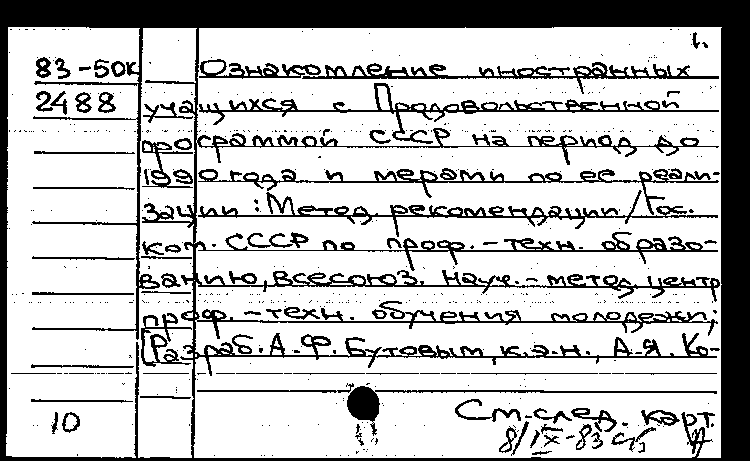 1.
83-50к Ознакомление иностранных
2488 учащихся с Продовольственной
программой СССР на период до
1990 года и мерами по ее реали-
зации : Метод. рекомендации / Гос.
ком. СССР по проф.-техн. образо-
ванию, Всесоюз. науч.-метод. центр
проф.-техн. обучения молодежи;
[Разраб. А.Ф. Бутовым, к.э.н., А.Я. Ко-
10 См. след. карт.
8/IX-83